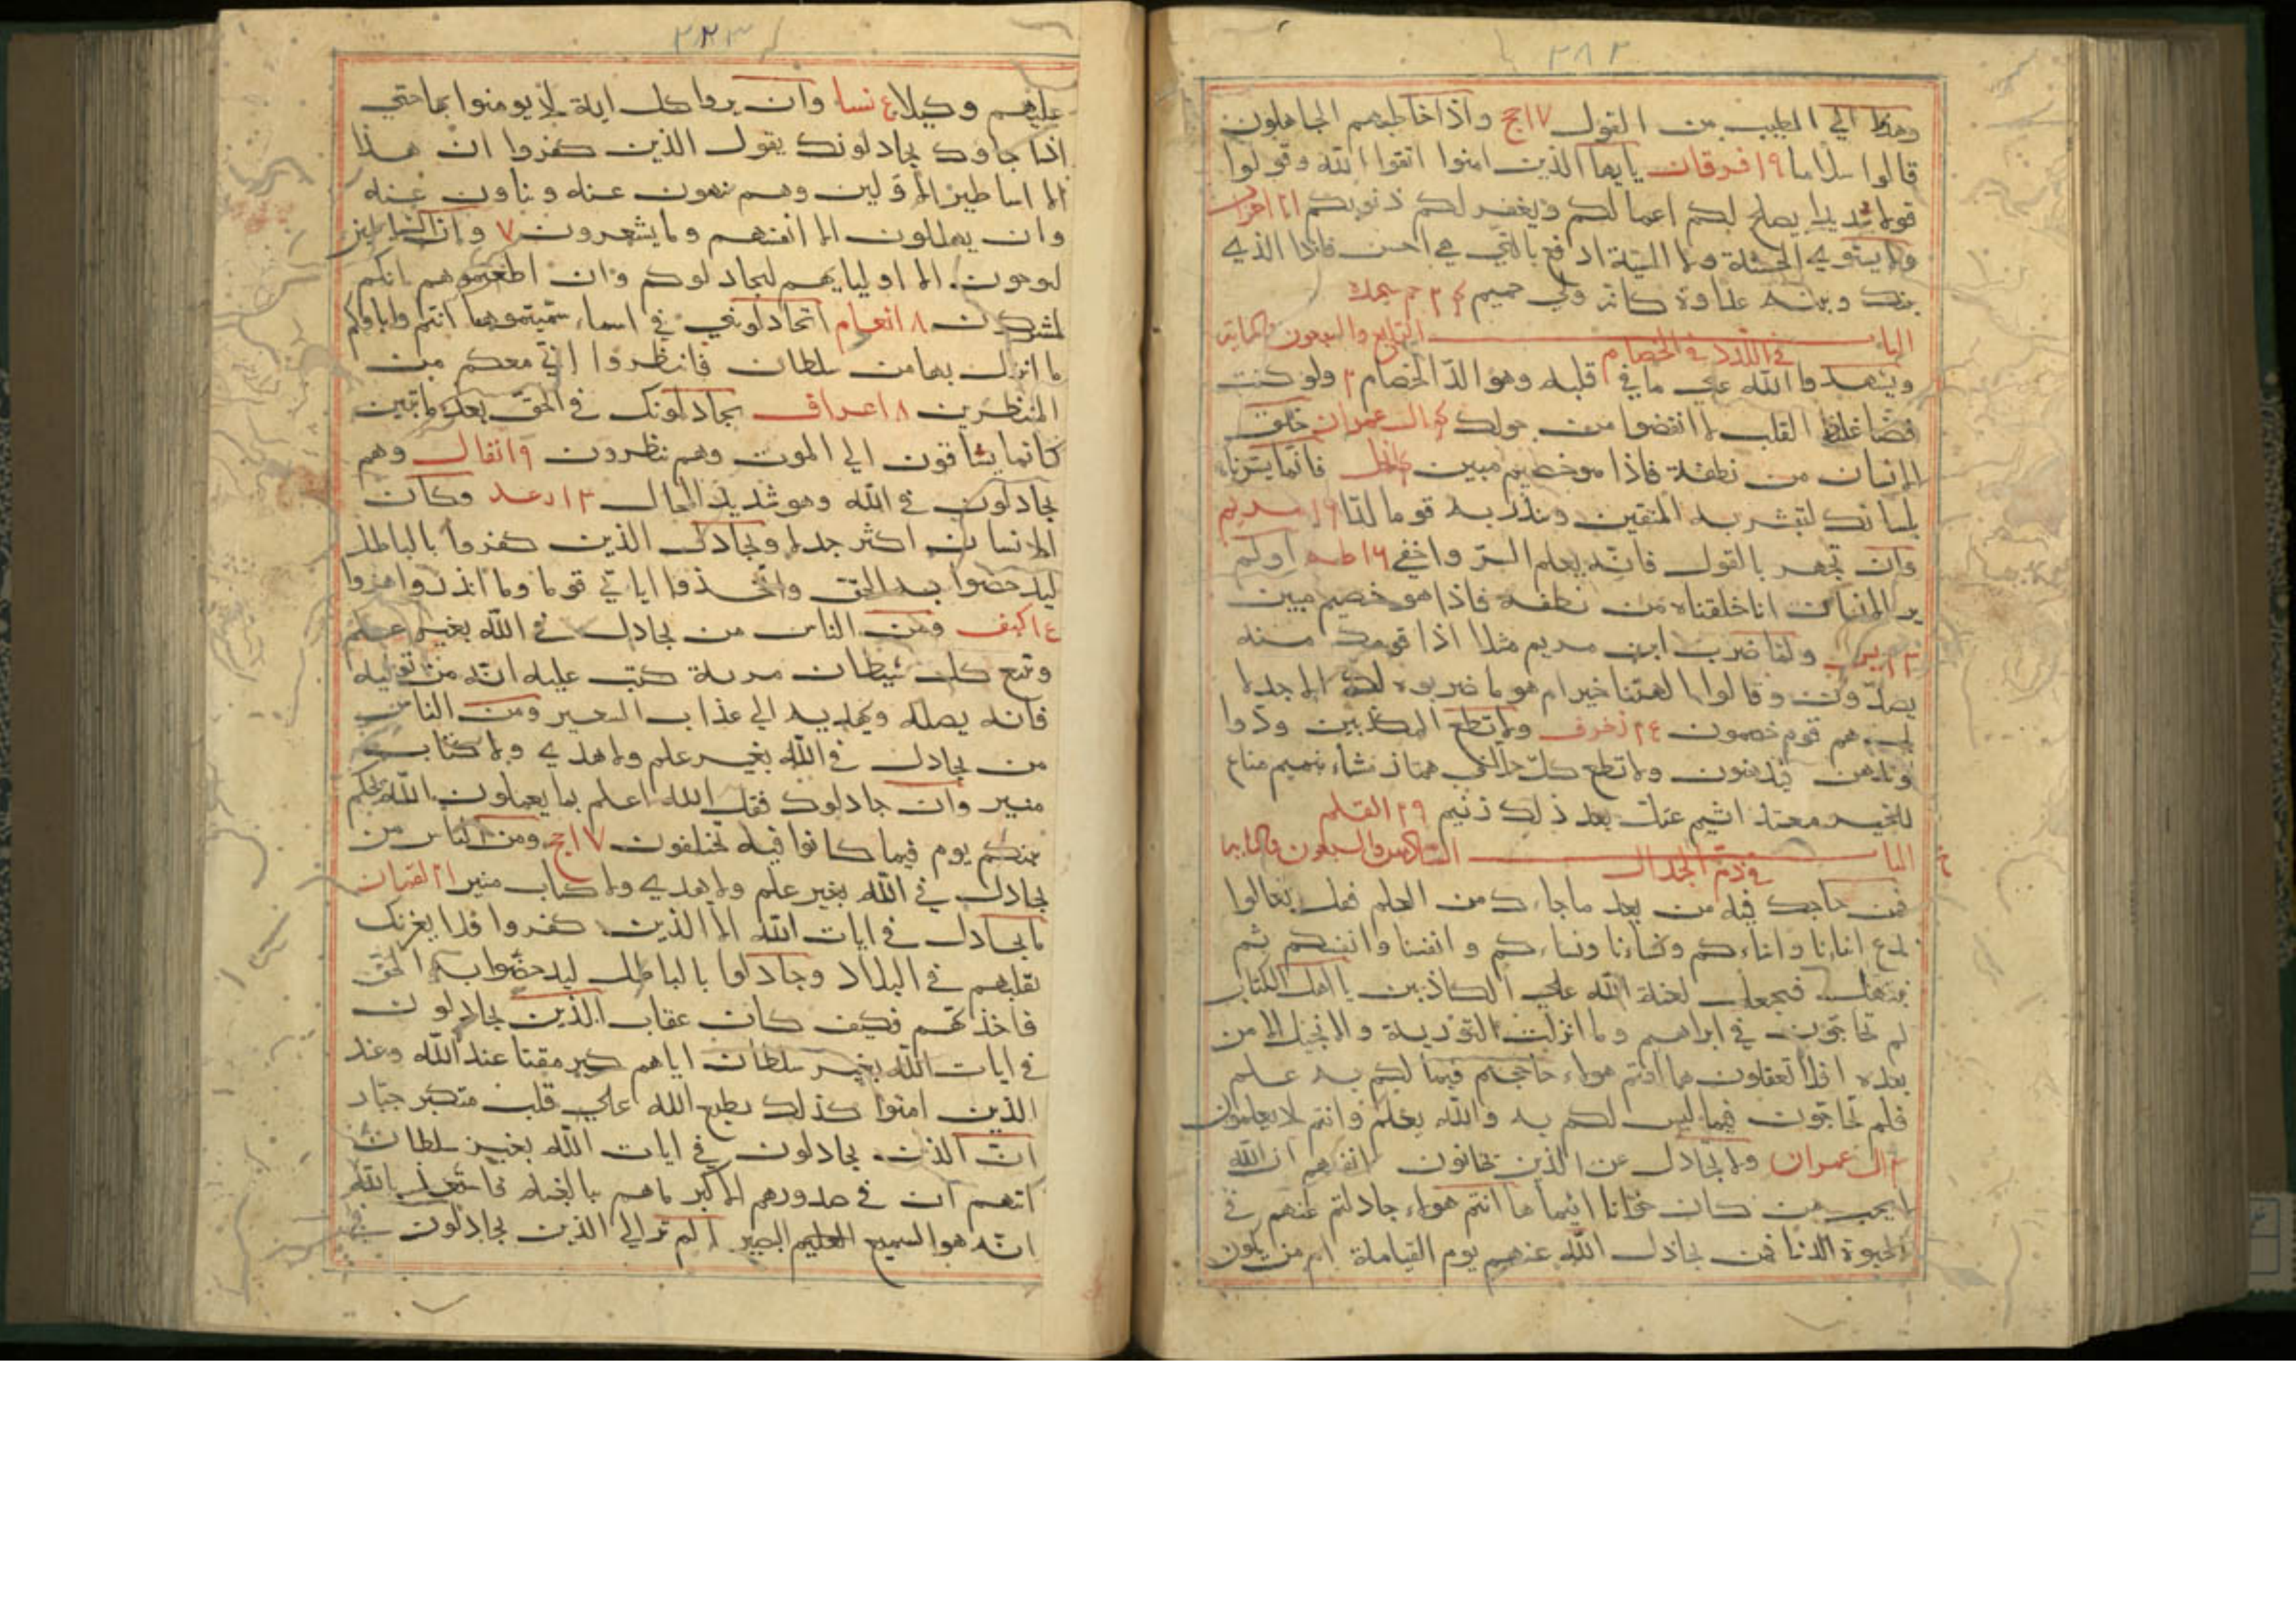 ٢٨٢
وهدوا الي الطيب من القول ١٧ حج واذا خاطبهم الجاهلون
قالوا سلاما ١٩ فرقان يايها الذين امنوا اتقوا الله وقولوا
قولا سديدا يصلح لكم اعمالكم ويغفر لكم ذنوبكم
ولا يستوي الحسنة ولا السيئة ادفع بالتي هي احسن فاذا الذي
بينك وبينه عداوة كانه ولي حميم
الباب الخامس والسبعون والمائة
في اللدد في الخصام
ويشهدوا الله علي ما في قلبه وهو الدّ الخصام ٢ ولو كنت
فضّا غليظ القلب لا انفضوا من حولك ال عمران خلق
الانسان من نطفة فاذا هو خصيم مبين نحل فانما يسرناه
بلسانك لتبشر به المتقين وتنذر به قوما لدّا مريم
وان تجهر بالقول فانه يعلم السر واخفي ١٦ طه اولم
ير الانسان انا خلقناه من نطفه فاذا هو خصيم مبين
ولما ضرب ابن مريم مثلا اذا قومك منه
يصدّون وقالوا االهتنا خير ام هو ما ضربوه لك الا جدلا
بل هم قوم خصمون زخرف ولا تطع المكذبين ودّوا
لو تدهن فيدهنون ولا تطع كلّ حلاف همّاز مشاء بنميم مناع
للخير معتد اثيم عتل بعد ذلك زنيم ٢٩ القلم
الباب السادس والسبعون والمائة
في ذم الجدال
فمن حاجك فيه من بعد ما جاءك من العلم فقل تعالوا
ندع ابنانا وابناءكم ونساءنا ونساءكم وانفسنا وانفسكم ثم
نبتهل فنجعل لعنة الله علي الكاذبين يا اهل الكتاب
لم تحاجون في ابراهيم وما انزلت التورية والانجيل الا من
بعده افلا تعقلون ها انتم هولاء حاججتم فيما لكم به علم
فلم تحاجون فيما ليس لكم به والله يعلم وانتم لا يعلمون
ال عمران ولا تجادل عن الذين يختانون انفسهم ان الله
لا يحب من كان خوّانا اثيما ها انتم هولاء جادلتم عنهم في
الحيوة الدنا فمن يجادل الله عنهم يوم القيامة ام من يكون
٢٨٣
عليهم وكيلا ٤ نسا وان يروا كل اية لا يومنوا بها حتي
اذا جاوك يجادلونك يقول الذين كفروا ان هذا
الا اساطير الاولين وهم ينهون عنه ويناون عنه
وان يهلكون الا انفسهم وما يشعرون ٧ وان الشياطين
ليوحون الا اوليايهم ليجادلوكم وان اطعتموهم انكم
لمشركون ٨ انعام اتجادلونني في اسماء سميتموها انتم واباوكم
ما انزل بها من سلطان فانتظروا اني معكم من
المنتظرين ٨ اعراف يجادلونك في الحق بعد ما تبين
كانما يساقون الي الموت وهم ينظرون ٩ انفال وهم
يجادلون في الله وهو شديد المحال ١٣ رعد وكان
الانسان اكثر جدلا ويجادل الذين كفروا بالباطل
ليدحضوا به الحق واتخذوا اياتي وما انذروا هزوا
كهف ومن الناس من يجادل في الله بغير علم
وتبع كل شيطان مريد كتب عليه انه من توليه
فانه يضله ويهديه الي عذاب السعير ومن الناس
من يجادل في الله بغير علم ولا هدي ولا كتاب
منير وان جادلوك فقل الله اعلم بما يعملون الله يحكم
بينكم يوم فيما كانوا فيه تختلفون ١٧ حج ومن الناس من
يجادل في الله بغير علم ولا هدي ولا كتاب منير ٢١ لقمان
ما يجادل في ايات الله الا الذين كفروا فلا يغرنك
تقلبهم في البلاد وجادلوا بالباطل ليدحضوا به الحق
فاخذتهم فكيف كان عقاب الذين يجادلون
في ايات الله بغير سلطان اياهم كبر مقتا عند الله وعند
الذين امنوا كذلك يطبع الله علي قلب متكبر جبّار
ان الذين يجادلون في ايات الله بغير سلطان
اتهم ان في صدورهم الا كبر ما هم ببالغيه فاستعذ بالله
انه هو السميع العليم البصير الم تر الي الذين يجادلون في